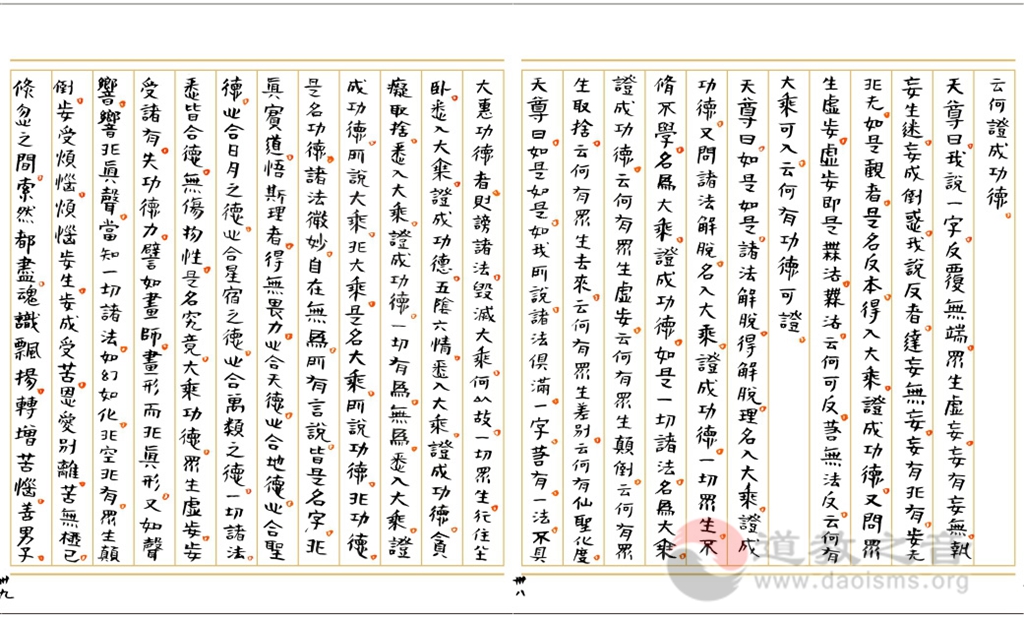 云何證成功德
天尊曰我說一字反覆無端眾生虛妄妄有妄無執
妄生迷妄成倒惑我說反者達妄無妄妄有非有妄无
非无如是觀者是名反本得入大乘證成功德又問眾
生虛妄虛妄即是業法業法云何可反善無法反云何有
大乘可入云何有功德可證
天尊曰如是如是諸法解脫得解脫理名入大乘證成
功德又問諸法解脫名入大乘證成功德一切眾生不
脩不學名爲大乘證成功德如是一切諸法名爲大乘
證成功德云何有眾生虛妄云何有眾生顛倒云何有眾
生取捨云何有眾生去來云何有眾生差別云何有仙聖化度
天尊曰如是如是如我所說諸法俱滿一字若有一法不具
大惠功德者則謗諸法毀滅大乘何以故一切眾生行住坐
臥悉入大乘證成功德五陰六情悉入大乘證成功德貪
癡取捨悉入大乘證成功德一切有爲無爲悉入大乘證
成功德所說大乘非大乘是名大乘所說功德非功德
是名功德諸法微妙自在無爲所有言說皆是名字非
眞實道悟斯理者得無畏力也合天德也合地德也合聖
德也合日月之德也合星宿之德也合萬類之德一切諸法
悉皆合德無傷物性是名究竟大乘功德眾生虛妄妄
受諸有失功德力譬如畫師畫形而非眞形又如聲
響響非眞聲當知一切諸法如幻如化非空非有眾生顛
倒妄受煩惱煩惱妄生妄成受苦恩愛別離苦無極已
倏忽之間索然都盡魂識飄揚轉增苦惱善男子
卌八
卌九
道教之音
www.daoisms.org